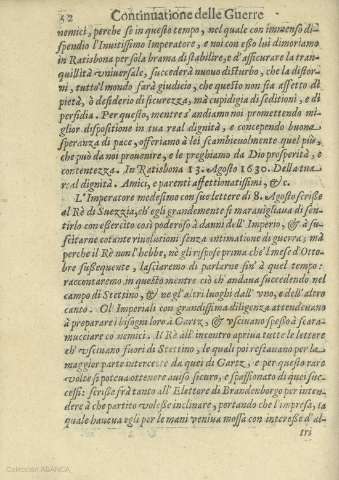 52 Continuatione delle Guerre
nemici, perche se in questo tempo, nel quale con immenso di-
spendio l'Inuitissimo Imperatore, e noi con esso lui dimoriamo
in Ratisbona per sola brama di stabilire, e d'assicurare la tran-
quillità vniuersale, succederà nuouo disturbo, che la distor-
ni, tutto'l mondo sarà giudice, che questo non sia affetto di
pietà, ò desiderio di sicurezza, mà cupidigia di seditioni, e di
perfidia. Per questo, mentre s'andiamo noi promettendo mi-
glior dispositione in tua real dignità, e concependo buona
speranza di pace, offeriamo à lei scambieuolmente quel più,
che può da noi prouenire, e le preghiamo da Dio prosperità, e
contentezza. In Ratisbona 13. Agosto 1630. Della tua
real dignità. Amici, e parenti affettionatissimi, &c.
L'Imperatore medesimo con sue lettere di 8. Agosto scrisse
al Rè di Suezzia, ch'egli grandemente si marauigliaua di sen-
tirlo con essercito così poderoso à danni dell'Imperio, & à su-
scitarne cotante riuolutioni senza intimatione di guerra; mà
perche il Rè non l'hebbe, nè gli rispose prima che'l mese d'Otto-
bre sussequente, lasciaremo di parlarne sin' à quel tempo:
raccontaremo in questo mentre ciò ch'andaua succedendo nel
campo di Stettino, & ne gl'altri luoghi dall'vno, e dell'altro
canto. Gl'Imperiali con grandissima diligenza attendeuano
à preparare i bisogni loro à Gartz, & vsciuano spesso à scara-
mucciare co nemici. Il Rè all'incontro apriua tutte le lettere
ch'vsciuano fuori di Stettino, le quali poi restauano per la
maggior parte intercette da quei di Gartz, e per questo rare
volte si poteua ottenere auiso sicuro, e spassionato di quei suc-
cessi: scrisse frà tanto all'Elettore di Brandenborgo per inten-
dere à che partito volesse inclinare, portando che l'impresa, la
quale haueua egli per le mani veniua mossa con interesse d'al-
tri
Colección ABANCA